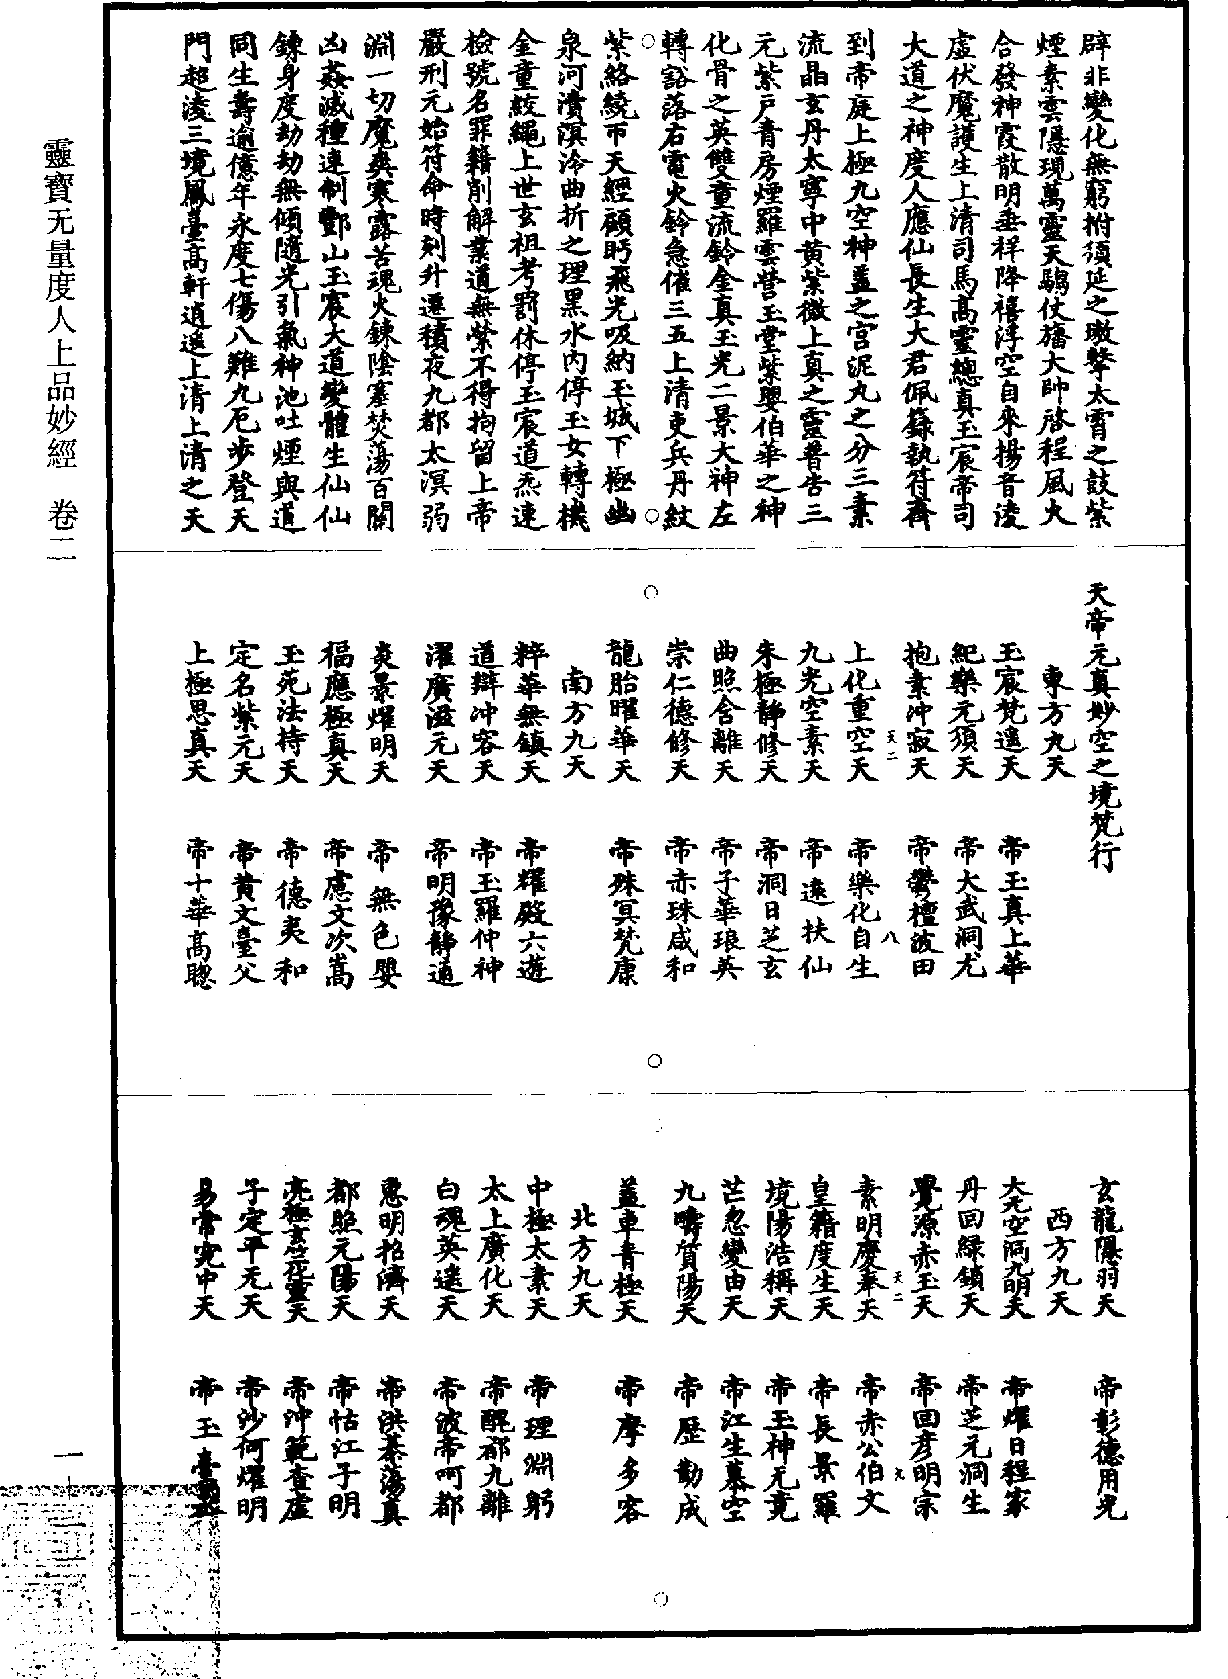 靈寶无量度人上品妙經　卷二
辟非變化無窮拊須延之璈擊太霄之鼓紫
煙素雲隱現萬靈天騶仗旛大帥啓程風火
合發神霞散明垂祥降禧浮空自來揚音淩
虛伏魔護生上清司馬高靈總真玉宸帝司
大道之神度人應仙長生大君佩籙執符齎
到帝庭上極九空神蓋之宮泥丸之分三素
流晶玄丹太寧中黃紫微上真之靈普告三
元紫戶青房煙羅雲營玉堂紫嬰伯華之神
化骨之英雙童流鈴金真玉光二景大神左
轉豁落右電火鈴急催三五上清吏兵丹紋
紫絡繞帀天經顧眄飛光吸納玉城下極幽
泉河瀆溟泠曲折之理黑水內停玉女轉機
金童絞繩上世玄祖考罰休停玉宸道炁速
檢號名罪籍削解業道無縈不得拘留上帝
嚴刑元始符命時刻升遷積夜九都太溟弱
淵一切魔爽寒露苦魂火鍊陰塞焚蕩百關
凶姦滅種連制酆山玉宸大道變體生仙仙
鍊身度劫劫無傾隨光引氣神池吐煙與道
同生壽逾億年永度七傷八難九厄步登天
門超淩三境鳳臺高軒逍遙上清上清之天
天帝元真妙空之境梵行
東方九天
玉宸梵遠天　帝玉真上華
紀樂元須天　帝大武洞尤
抱素沖寂天　帝鬱檀波田
天二　八
上化重空天　帝樂化自生
九光空素天　帝遠扶仙
朱極靜修天　帝洞日芝玄
曲照含離天　帝子華琅英
崇仁德修天　帝赤珠咸和
龍胎曜華天　帝殊冥梵康
南方九天
粹華無鎮天　帝耀殿六遊
道辯沖容天　帝玉羅仲神
濯廣溢元天　帝明豫靜道
炎景燿明天　帝無色嬰
福應極真天　帝慮文次嵩
玉苑法持天　帝德夷和
定名紫元天　帝黃文臺父
上極思真天　帝十華高聰
玄龍隱羽天　帝彰德用光
西方九天
大元空洞九明天　帝燿日程家
丹回綠鎖天　帝芝元洞生
覺源赤玉天　帝回彥明宗
天二　九
素明慶奉天　帝赤公伯文
皇籍度生天　帝長景羅
境陽浩稱天　帝玉神无竟
芒忽變由天　帝江生慕空
九疇質陽天　帝歷勤成
蓋車青極天　帝摩多容
北方九天
中極太素天　帝理淵躬
太上廣化天　帝醜都九離
白魂英遠天　帝波帝呵都
惠明招濟天　帝洪秦蕩真
都照元陽天　帝怙江子明
亮極玄範靈天　帝沖範查虛
子定平无天　帝沙何燿明
易常究中天　帝玉臺